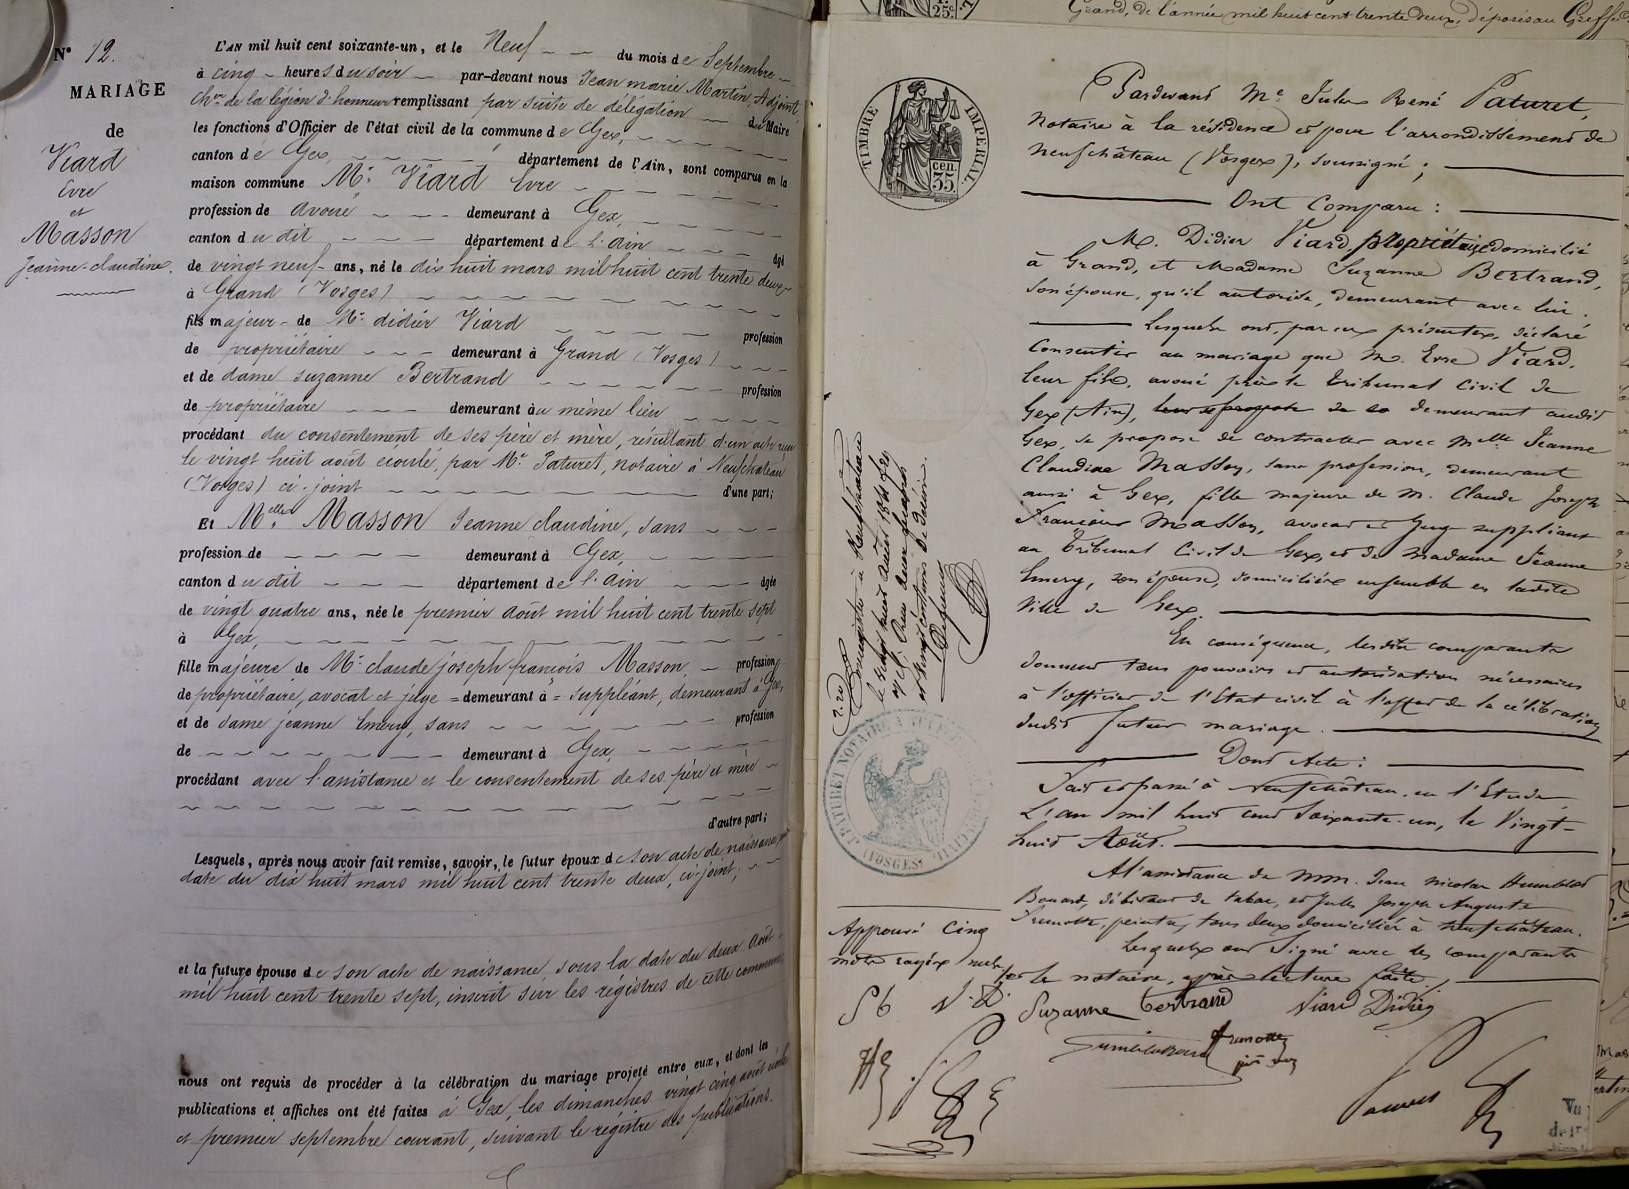 N° 12.
MARIAGE
de
Viard
Evre
et
Masson
Jeanne-claudine.
L'AN mil huit cent soixante-un, et le Neuf du mois de Septembre
à cinq heures du soir par-devant nous Jean marie Martin, Adjoint
Ch.er de la légion d'honneur remplissant par suite de délégation du Maire
les fonctions d'Officier de l'état civil de la commune de Gex,
canton de Gex, département de l'Ain, sont comparus en la
maison commune Mr. Viard Evre
profession de avoué demeurant à Gex,
canton du dit département de l'ain âgé
de vingt neuf ans, né le dix huit mars mil huit cent trente deux
à Grand (Vosges)
fils majeur de Mr. didier Viard profession
de propriétaire demeurant à Grand (Vosges)
et de dame suzanne Bertrand profession
de propriétaire demeurant au même lieu
procédant du consentement de ses père et mère, résultant d'un acte reçu
le vingt huit août écoulé, par Me. Paturet, notaire à Neufchateau
(Vosges) ci-joint d'une part;
Et Melle Masson Jeanne claudine, sans
profession de demeurant à Gex,
canton du dit département de l'ain âgée
de vingt quatre ans, née le premier août mil huit cent trente sept
à Gex,
fille majeure de Mr. claude joseph francois Masson, profession
de propriétaire, avocat et juge = demeurant à = suppléant, demeurant à Gex,
et de dame jeanne Emery, sans profession
de demeurant à Gex,
procédant avec l'assistance et le consentement de ses père et mère
d'autre part;
Lesquels, après nous avoir fait remise, savoir, le futur époux de son acte de naissance
date du dix huit mars mil huit cent trente deux, ci-joint,
et la future épouse de son acte de naissance, sous la date du deux Août
mil huit cent trente sept, inscrit sur les régistres de cette commune
nous ont requis de procéder à la célébration du mariage projeté entre eux, et dont les
publications et affiches ont été faites à Gex, les dimanches vingt cinq août
et premier septembre courant, suivant le régistre des publications.
25c
Grand, de l'année mil huit cent trente deux, déposés au Greffe
TIMBRE IMPERIAL
cen. 35
Pardevant Me. Jules René Paturet,
Notaire à la résidence et pour l'arrondissement de
Neufchâteau (Vosges), soussigné;
Ont Comparu:
M. Didier Viard, propriétaire domicilié
à Grand, et Madame Suzanne Bertrand,
son épouse, qu'il autorise, demeurant avec lui.
Lesquels ont, par ces présentes, déclaré
Consentir au mariage que M. Evre Viard,
leur fils, avoué près le tribunal Civil de
Gex (Ain), demeurant audit
Gex, se propose de contracter avec Melle Jeanne
Claudine Masson, sans profession, demeurant
aussi à Gex, fille majeure de M. Claude Joseph
François Masson, avocat et Juge suppléant
au Tribunal Civil de Gex, et de Madame Jeanne
Emery, son épouse, domiciliés ensemble en ladite
Ville de Gex.
En conséquence, lesdits comparants
donnent tous pouvoirs et autorisation nécessaires
à l'officier de l'Etat civil à l'effet de la célébration
dudit futur mariage.
Dont Acte:
Fait et passé à Neufchâteau, en l'Etude,
L'an mil huit cent Soixante-un, le Vingt-
huit Août.
A l'assistance de MM. Jean Nicolas Humblot
Bonard, débitant de tabac, et Jules Joseph Auguste
Fremotte, peintre, tous deux domiciliés à Neufchâteau.
Lesquels ont Signé avec les comparants
et le notaire, après lecture faite.
Suzanne bertrand Viard Didier
Enregistré à Neufchâteau
le vingt huit août 1861
Reçu deux francs
et vingt centimes de décime
PATURET NOTAIRE A NEUFCHATEAU (VOSGES)
Approuvé Cinq
mots rayés nuls
S b V. D.
Vu